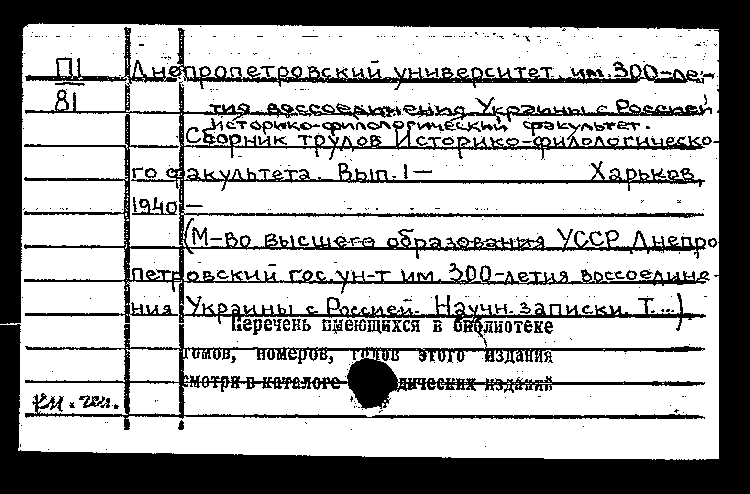 П1 Днепропетровский университет им. 300-ле-
81 тия воссоединения Украины с Россией.
Историко-филологический факультет.
Сборник трудов Историко-филологическо-
го факультета. Вып. 1— Харьков,
1940—
(М-во высшего образования УССР Днепро
петровский гос. ун-т им. 300-летия воссоедине-
ния Украины с Россией. Научн. записки. Т...)
Перечень имеющихся в библиотеке
томов, номеров, годов этого издания
смотри в каталоге дических изданий